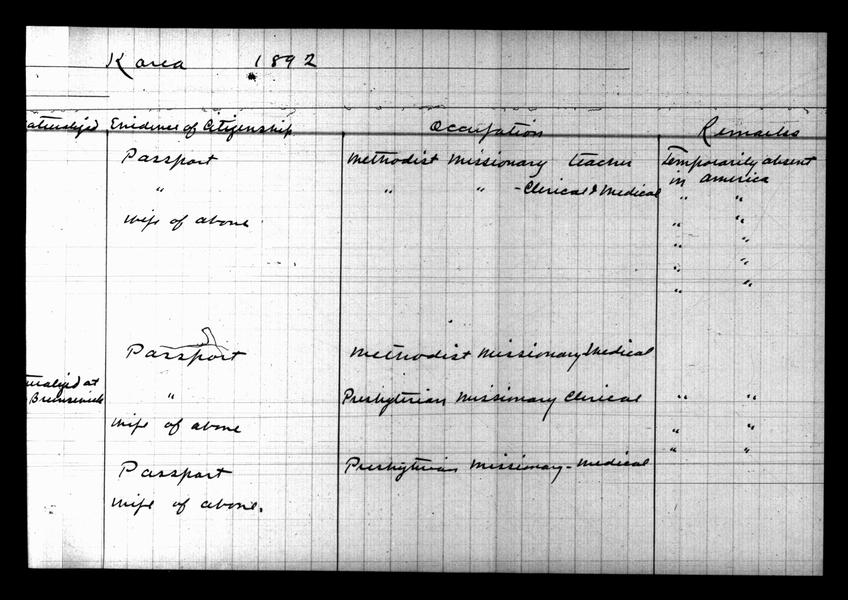 Korea 1892
Evidence of Citizenship Occupation Remarks
Passport Methodist Missionary teacher Temporarily absent
in America
" " " - Clerical & Medical " "
Wife of above " "
" "
" "
" "
Passport Methodist Missionary Medical
at
Brunswick " Presbyterian Missionary Clerical " "
Wife of above " "
" "
Passport Presbyterian Missionary - Medical
Wife of above.